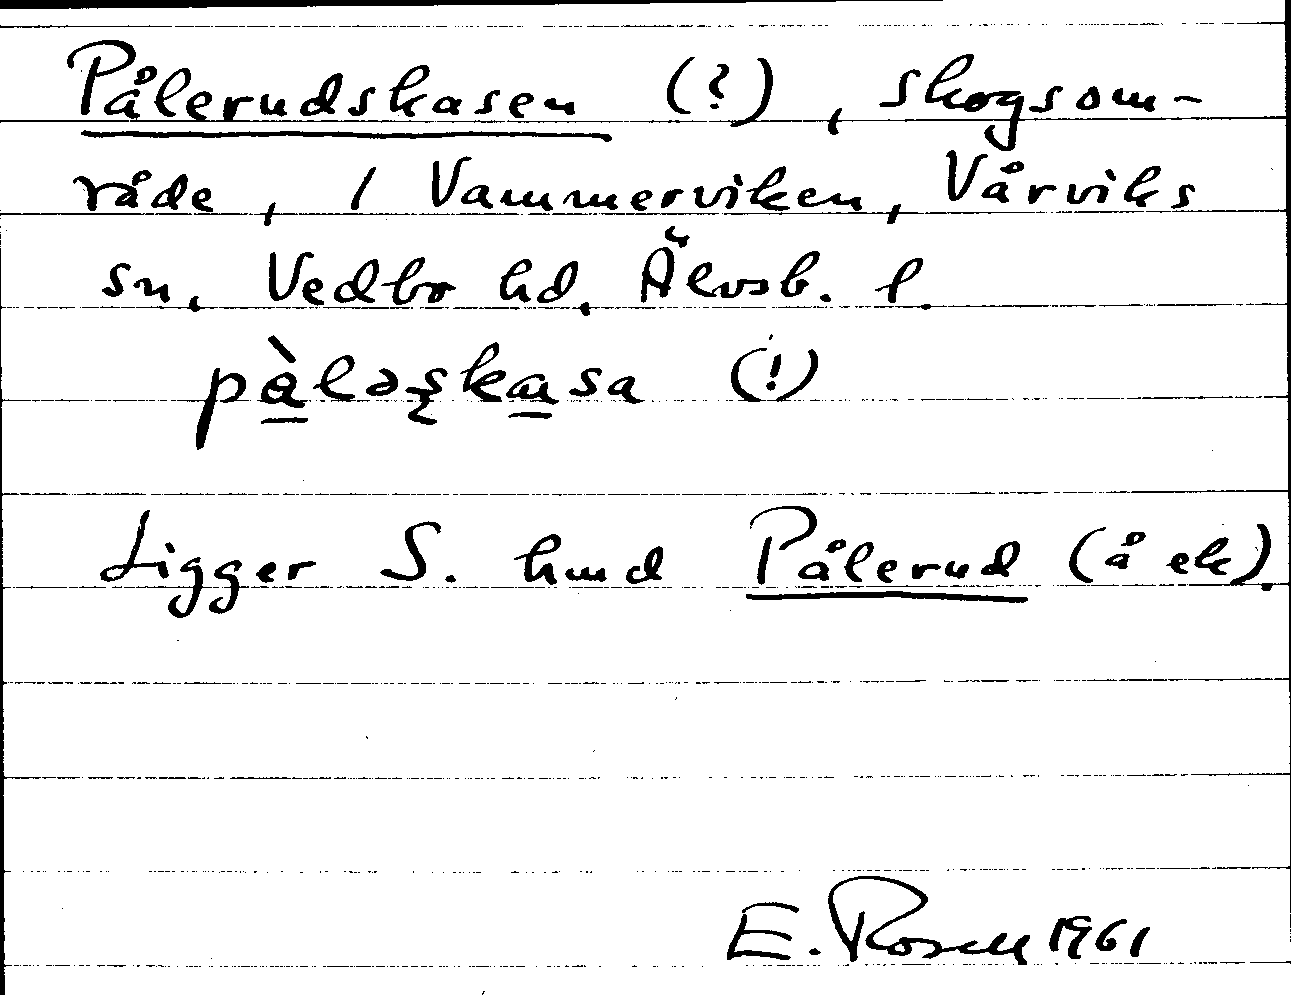 Pålerudskasen (?), skogsom-
råde, / Vammerviken, Vårviks
sn, Vedbo hd, Älvsb. l.
pàləskasa (!)
Ligger S. hmd Pålerud (å ek).
E. Rosell 1961